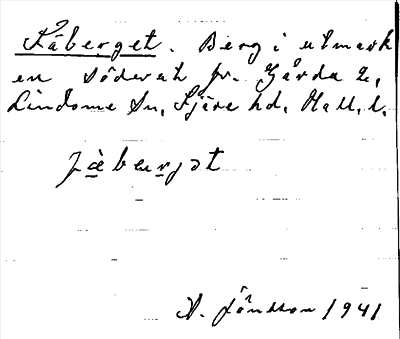 Fäberget. Berg i utmark
en söderut fr. Gårda 2,
Lindome sn, Fjäre hd. Hall. l.
fäberjat
A. Jönsson 1941